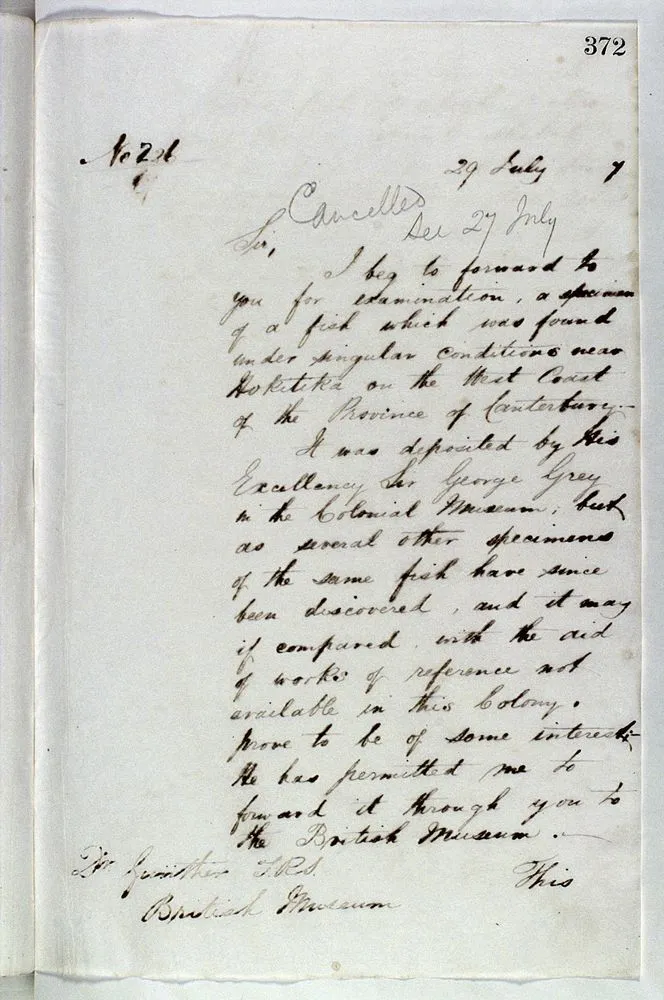 372
29 July 7
Cancelled
See 27 July
Sir,
I beg to forward to
you for examination, a specimen
of a fish which was found
under singular conditions near
Hokitika on the West Coast
of the Province of Canterbury.
It was deposited by His
Excellency Sir George Grey
in the Colonial Museum; but
as several other specimens
of the same fish have since
been discovered, and it may
if compared, with the aid
of works of reference not
available in this Colony.
prove to be of some interest-
He has permitted me to
forward it through you to
the British Museum.
Dr Gunther F.R.S.
This
British Museum